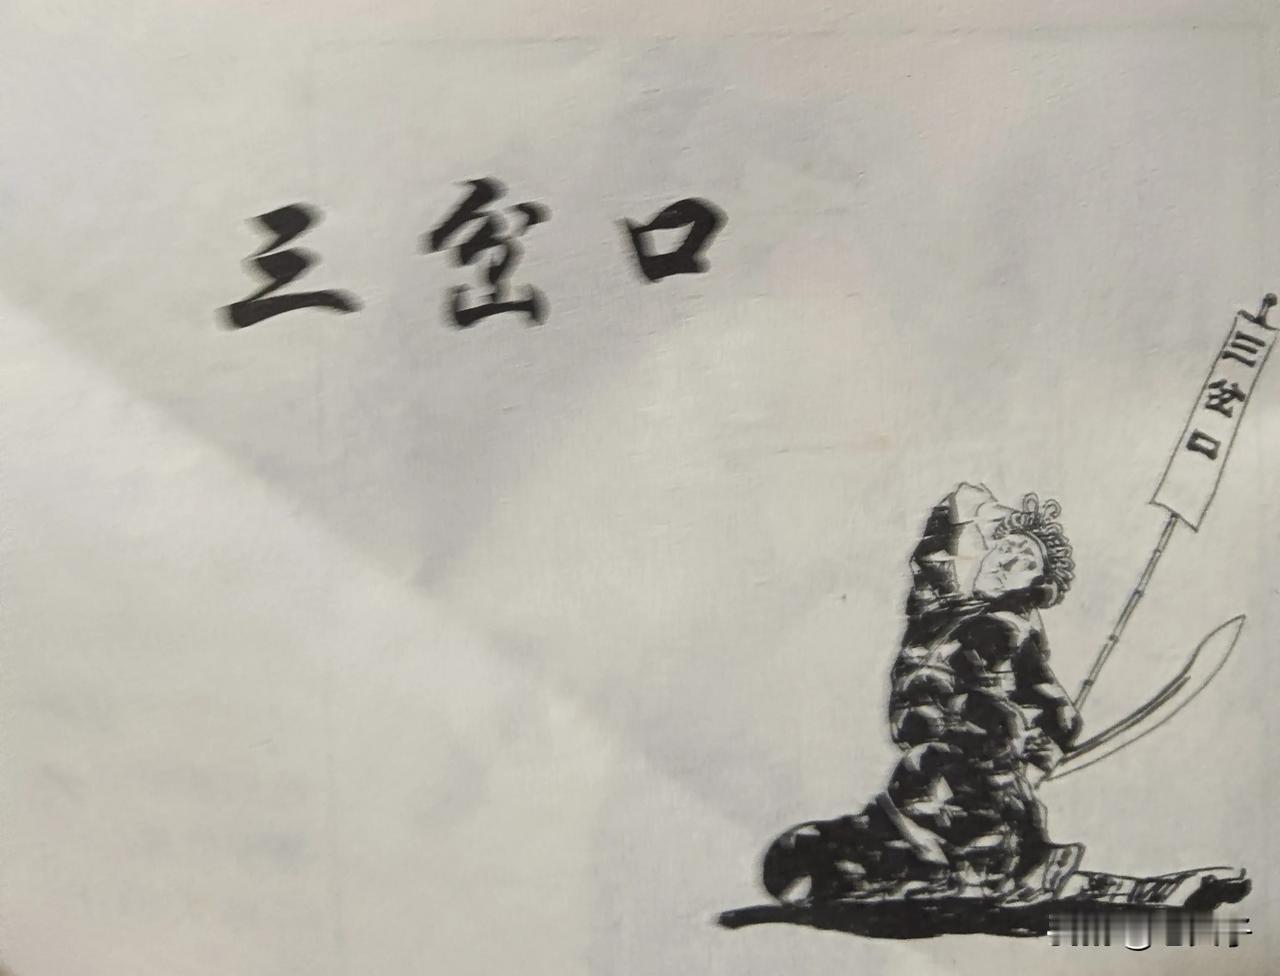 三岔口
三岔口